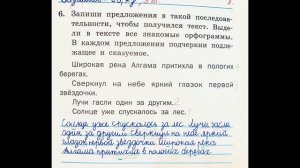 6. Запиши предложения в такой последова-
тельности, чтобы получился текст. Выде-
ли в тексте все знакомые орфограммы.
В каждом предложении подчеркни подле-
жащее и сказуемое.
Широкая река Алгама притихла в пологих
берегах.
Сверкнул на небе яркий глазок первой
звёздочки.
Лучи гасли один за другим.
Солнце уже спускалось за лес.
Солнце уже спускалось за лес. Лучи гасли
один за другим. Сверкнул на небе яркий
глазок первой звёздочки. Широкая река
Алгама притихла в пологих берегах.